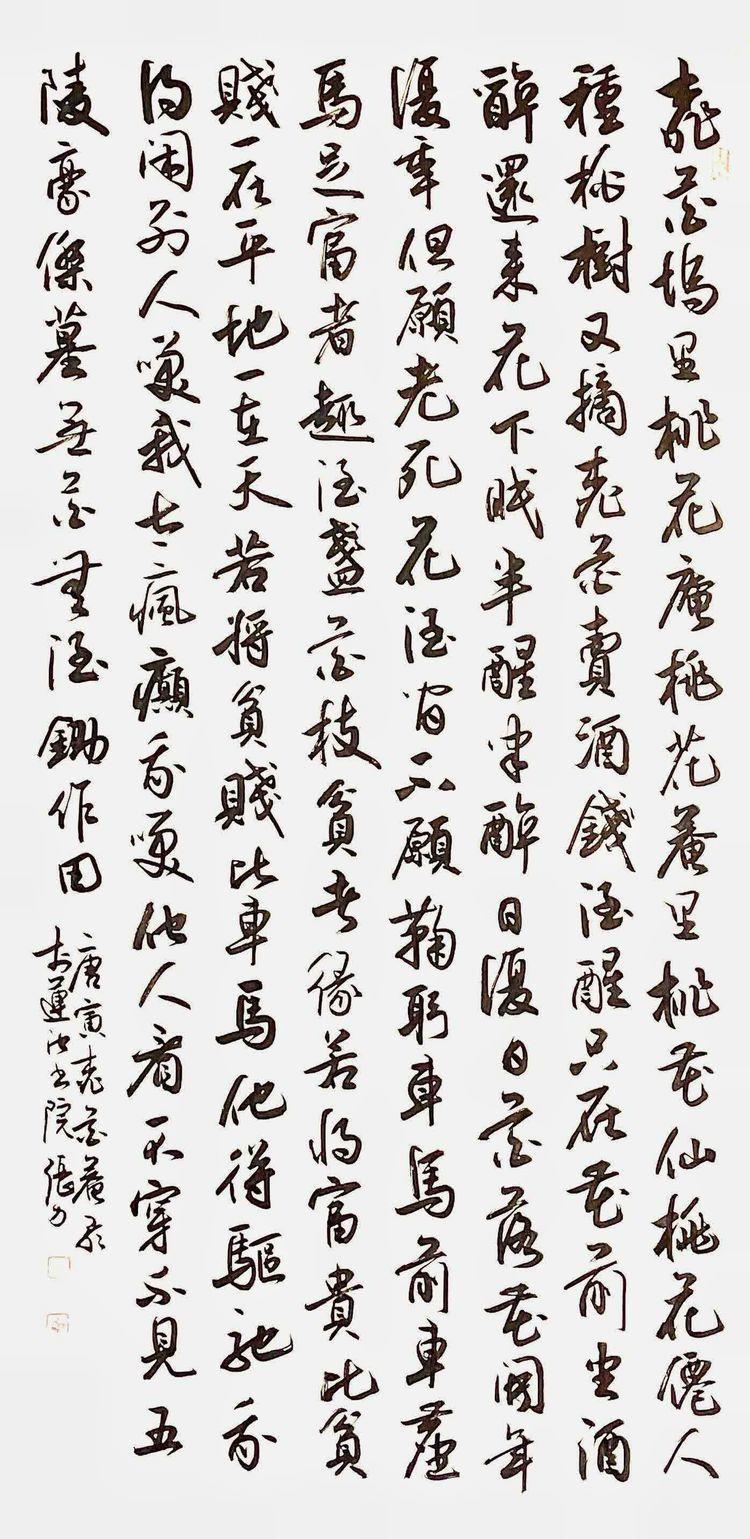 桃花塢里桃花庵桃花菴里桃花仙桃花僊人
種桃樹又摘桃花賣酒錢酒醒只在花前坐酒
醉還来花下眠半醒半醉日復日花落花開年
復年但願老死花酒間不願鞠躬車馬前車塵
馬足富者趣酒盞花枝貧者緣若將富貴比貧
賤一在平地一在天若將貧賤比車馬他得驅馳我
得闲別人笑我太瘋癲我笑他人看不穿不見五
陵豪傑墓無花無酒鋤作田
唐寅桃花菴歌
於蓮池書院張力